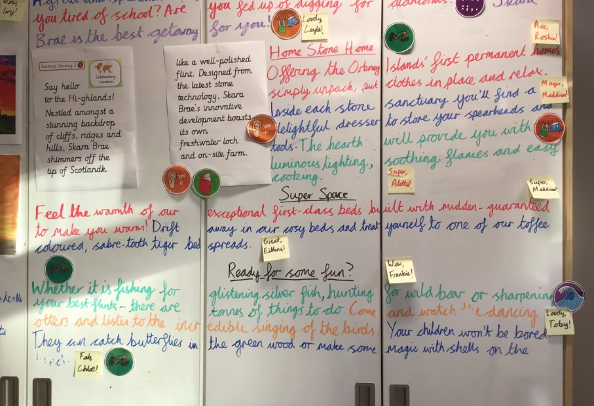 you tired of school? Are you fed up of digging for
Brae is the best getaway for you!
Lovely, Layla!
Say hello
to the Hi-ghlands!
Nestled amongst a
stunning backdrop
of cliffs, ridges and
hills, Skara Brae
shimmers off the
tip of Scotlandk.
like a well-polished
flint. Designed from
the latest stone
technology, Skara
Brae's innovative
development boasts
its own
freshwater loch
and on-site farm.
Home Stone Home
Offering the Orkney Islands' first permanent homes
simply unpack, put clothes in place and relax.
Inside each stone sanctuary you'll find a
delightful dresser to store your spearheads and
tools. The hearth will provide you with
luminous lighting, soothing flames and easy
cooking.
Magic, Maddison!
Super,
Super, Maddison!
Super Space
Feel the warmth of our exceptional first-class beds built with midden - guaranteed
to make you warm! Drift away in our cosy beds and treat yourself to one of our toffee
coloured, sabre-tooth tiger bed spreads.
Great,
Wow, Frankie!
Ready for some fun?
Whether it is fishing for glistening silver fish, hunting for wild boar or sharpening
your best flints - there are tonnes of things to do. Come and watch the dancing
otters and listen to the incredible singing of the birds
Your children won't be bored
They can catch butterflies in the green wood or make some magic with shells on the
Fab, Chloe!
Lovely, Toby!